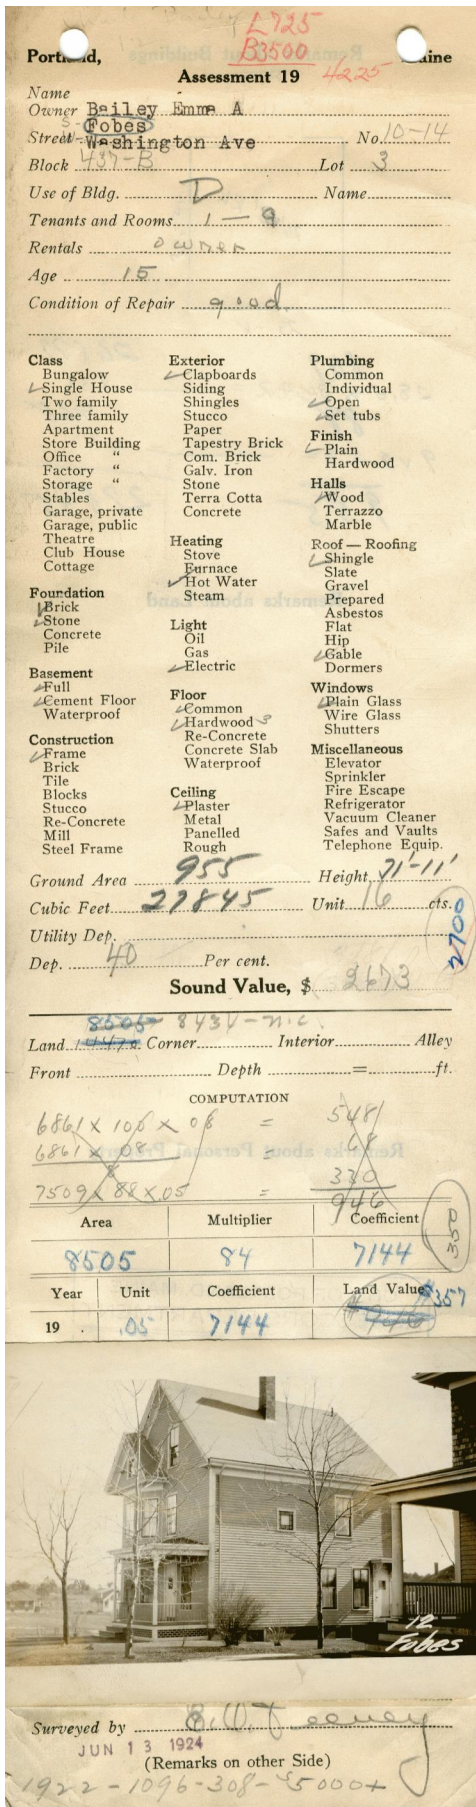 L725
B3500
4225
Portland, Maine
Assessment 19
Name
Owner Bailey Emma A
Fobes
Street Washington Ave No. 10-14
Block 437-B Lot 3
Use of Bldg. D Name
Tenants and Rooms 1 — 9
Rentals owner
Age 15
Condition of Repair good
Class
Bungalow
✓ Single House
Two family
Three family
Apartment
Store Building
Office "
Factory "
Storage "
Stables
Garage, private
Garage, public
Theatre
Club House
Cottage
Foundation
✓ Brick
✓ Stone
Concrete
Pile
Basement
✓ Full
✓ Cement Floor
Waterproof
Construction
✓ Frame
Brick
Tile
Blocks
Stucco
Re-Concrete
Mill
Steel Frame
Exterior
✓ Clapboards
Siding
Shingles
Stucco
Paper
Tapestry Brick
Com. Brick
Galv. Iron
Stone
Terra Cotta
Concrete
Heating
Stove
Furnace
✓ Hot Water
Steam
Light
Oil
Gas
✓ Electric
Floor
✓ Common
✓ Hardwood 3
Re-Concrete
Concrete Slab
Waterproof
Ceiling
✓ Plaster
Metal
Panelled
Rough
Plumbing
Common
Individual
✓ Open
✓ Set tubs
Finish
✓ Plain
Hardwood
Halls
✓ Wood
Terrazzo
Marble
Roof — Roofing
✓ Shingle
Slate
Gravel
Prepared
Asbestos
Flat
Hip
✓ Gable
Dormers
Windows
✓ Plain Glass
Wire Glass
Shutters
Miscellaneous
Elevator
Sprinkler
Fire Escape
Refrigerator
Vacuum Cleaner
Safes and Vaults
Telephone Equip.
Ground Area 955 Height
Cubic Feet 27845 Unit 16 cts.
2700
Utility Dep.
Dep. 40 Per cent.
Sound Value, $ 2673
8505 8434 - n.c.
Land Corner Interior Alley
Front Depth = ft.
COMPUTATION
6861 x 106 x 08 = 548
6861 x 08 = 68
7509 x 88 x 05 = 330
946
Area Multiplier Coefficient
350
8505 84 7144
Year Unit Coefficient Land Value
357
19 .05 7144
12
Fobes
Surveyed by
JUN 13 1924
(Remarks on other Side)
1922 - 1096 - 308 - $5000+